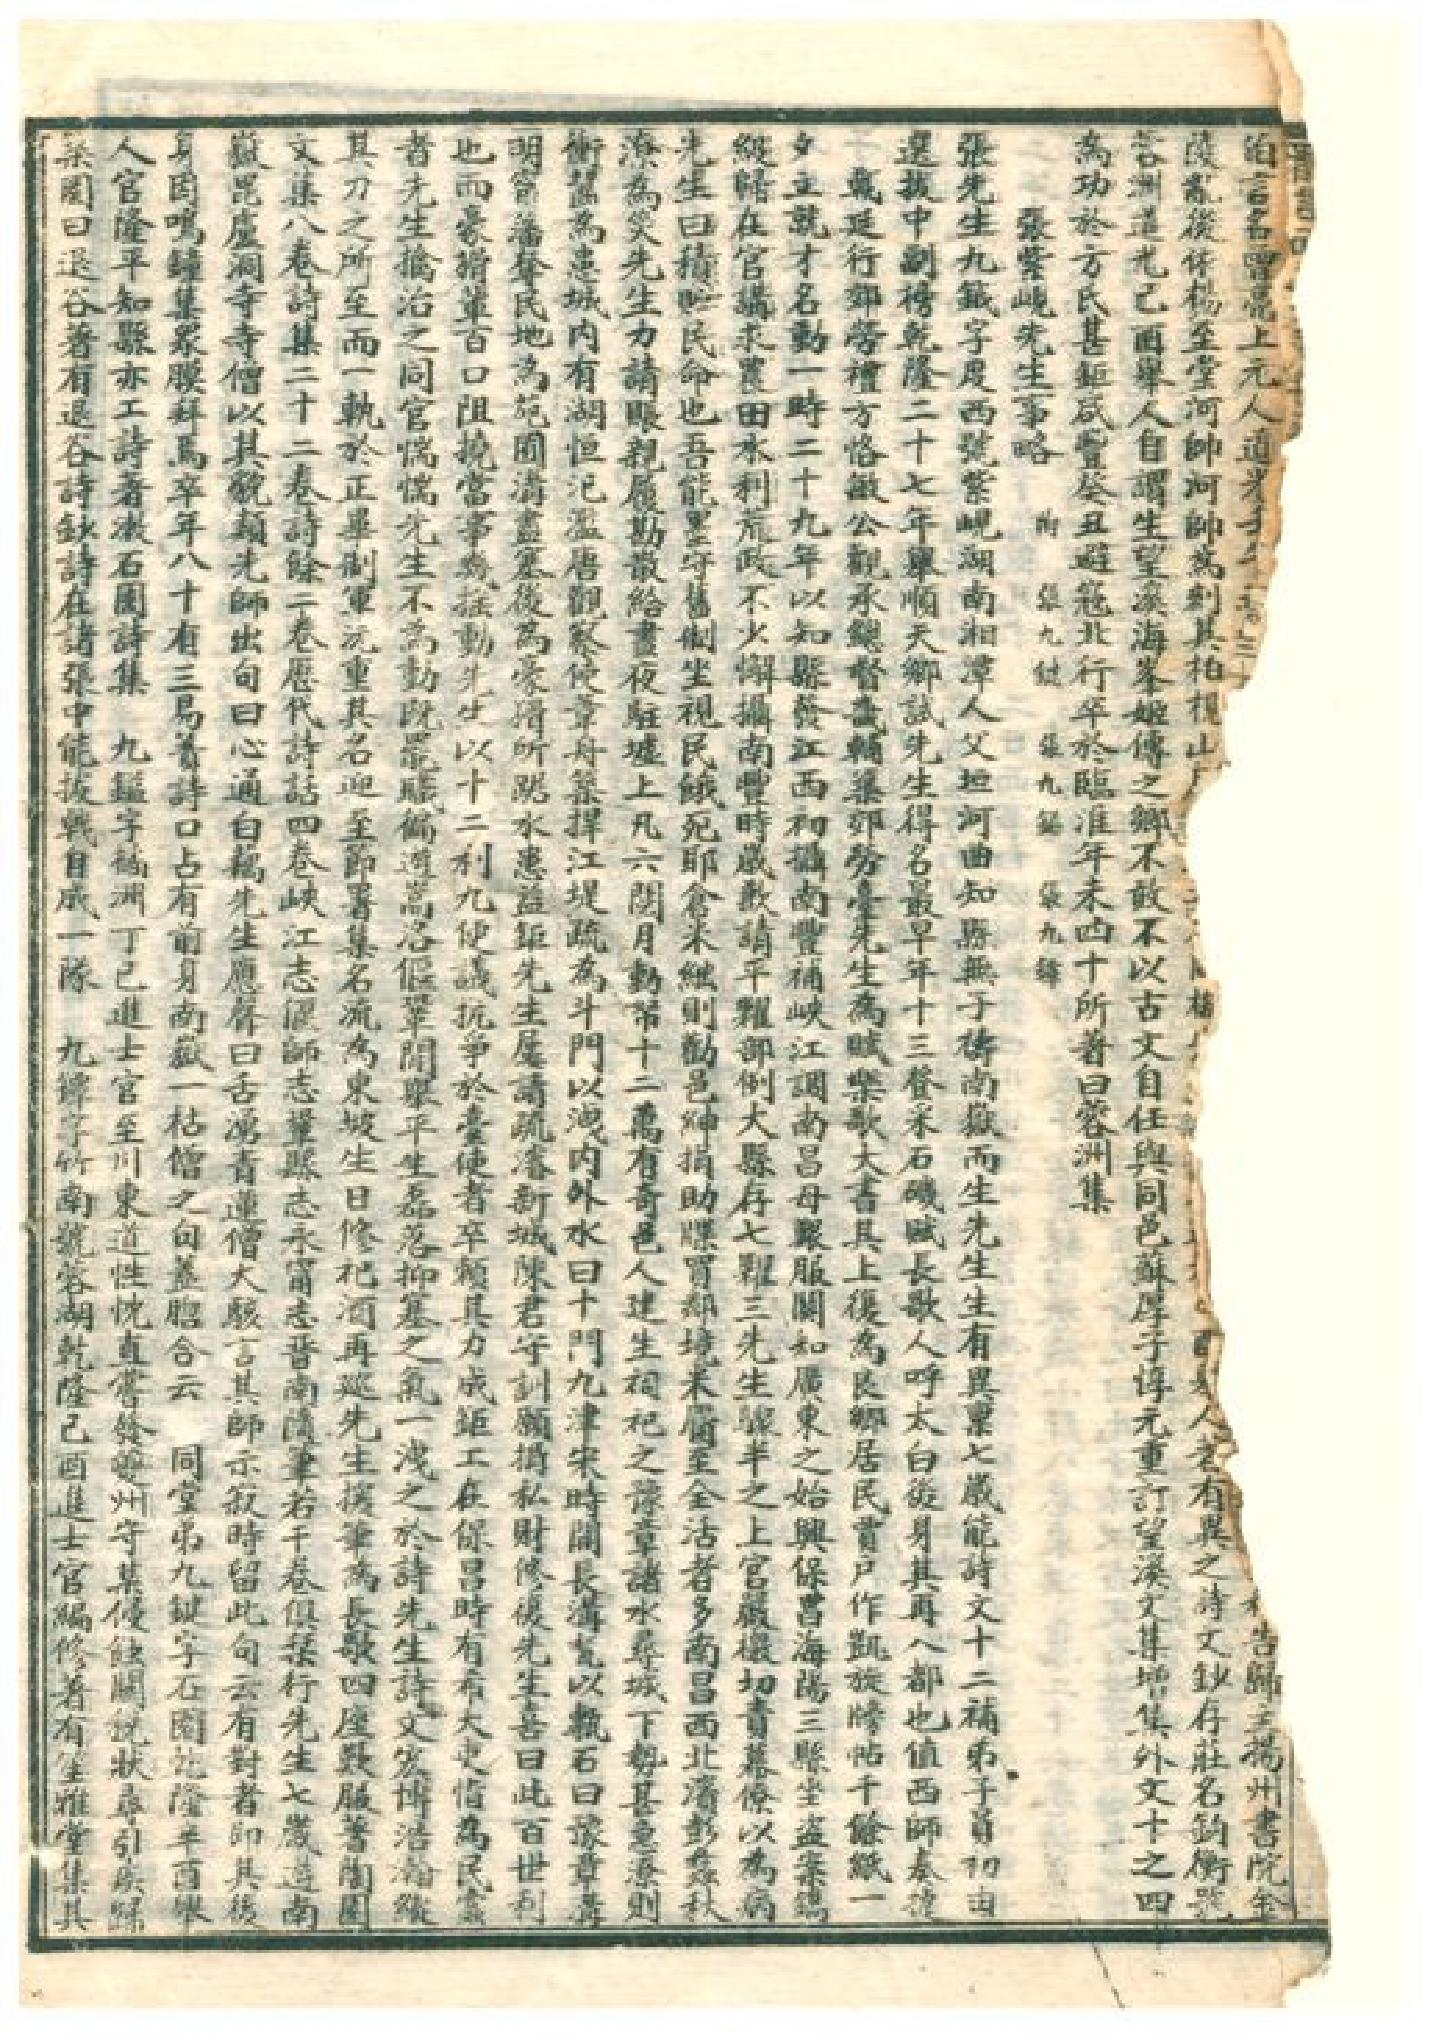 伯言名曾亮上元人道光 告歸主揚州書院金
陵亂後依楊至堂河帥河帥為刊其柏梘山房 人著有異之詩文鈔存莊名鈞衡號
蓉洲道光己酉舉人自謂生望溪海峯姬傳之鄉不敢不以古文自任與同邑蘇厚子惇元重訂望溪文集增集外文十之四
為功於方氏甚鉅咸豐癸丑避寇北行卒於臨淮年未四十所著曰蓉洲集
張紫峴先生事略 附 張九鍵 張九鎰 張九鐔
張先生九鉞字度西號紫峴湖南湘潭人父垣河曲知縣無子禱南嶽而生先生生有異稟七歲能詩文十二補弟子員初由
選拔中副榜乾隆二十七年舉順天鄉試先生得名最早年十三登采石磯賦長歌人呼太白後身其再入都也值西師奏捷
子載廷行郊勞禮方恪敏公觀承總督畿輔築郊勞臺先生為賦樂歌大書其上復為良鄉居民賈戶作凱旋牓帖千餘紙一
夕立就才名動一時二十九年以知縣發江西初攝南豐補峽江調南昌母艱服闋知廣東之始興保昌海陽三縣坐盜案鐫
級歸在官講求農田水利荒政不少懈攝南豐時歲歉請平糶部例大縣存七糶三先生驟半之上官嚴檄切責幕僚以為病
先生曰積貯民命也吾能墨守舊制坐視民餓死耶倉米繼則勸邑紳捐助牒買鄰境米屬至全活者多南昌西北濱彭蠡秋
潦為災先生力請賑親履勘散給晝夜駐墟上凡六閱月動帑十二萬有奇邑人建生祠祀之豫章諸水尋城下勢甚急潦則
衝齧為患城內有湖恒汜濫唐觀察使韋丹築捍江堤疏為斗門以洩內外水曰十門九津宋時開長溝甃以甎石曰豫章溝
明甯藩奪民地為苑囿溝盡塞後為豪猾所踞水患益鉅先生屢請疏濬新城陳君守訓願捐私財修復先生喜曰此百世利
也而豪猾輩百口阻撓當事幾搖動先生以十二利九便議抗爭於臺使者卒賴其力成鉅工在保昌時有希大吏指為民害
者先生擒治之同官惴惴先生不為動既罷職徧遊嵩洛偃鞏間舉平生磊落抑塞之氣一洩之於詩先生詩文宏博浩瀚縱
其刀之所至而一軌於正畢制軍沅重其名迎至節署集名流為東坡生日修祀酒再巡先生援筆為長歌四座歎服著陶園
文集八卷詩集二十二卷詩餘二卷歷代詩話四卷峽江志偃師志鞏縣志永甯志晉南隨筆若干卷俱栞行先生七歲遊南
嶽毘盧洞寺寺僧以其貌類先師出句曰心通白藕先生應聲曰舌湧青蓮僧大駭言其師示寂時留此句云有對者即其後
身因鳴鐘集眾膜拜焉卒年八十有三易簀詩口占有前身南嶽一枯僧之句蓋脗合云 同堂弟九鍵字石園乾隆辛酉舉
人官隆平知縣亦工詩著漱石園詩集 九鎰字橘洲丁巳進士官至川東道性忱直嘗發夔州守某侵蝕關稅狀尋引疾歸
築園曰退谷著有退谷詩鈔詩在諸張中能拔戟自成一隊 九鐔字竹南號蓉湖乾隆己酉進士官編修著有笙雅堂集其